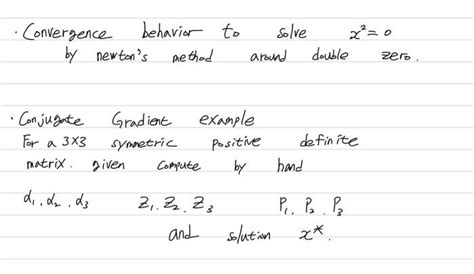 · Convergence behavior to solve x² = 0
by newton's method around double zero.
· Conjugate Gradient example
For a 3×3 symmetric positive definite
matrix. given compute by hand
α₁, α₂, α₃ Z₁, Z₂, Z₃ P₁, P₂, P₃
and solution x*.